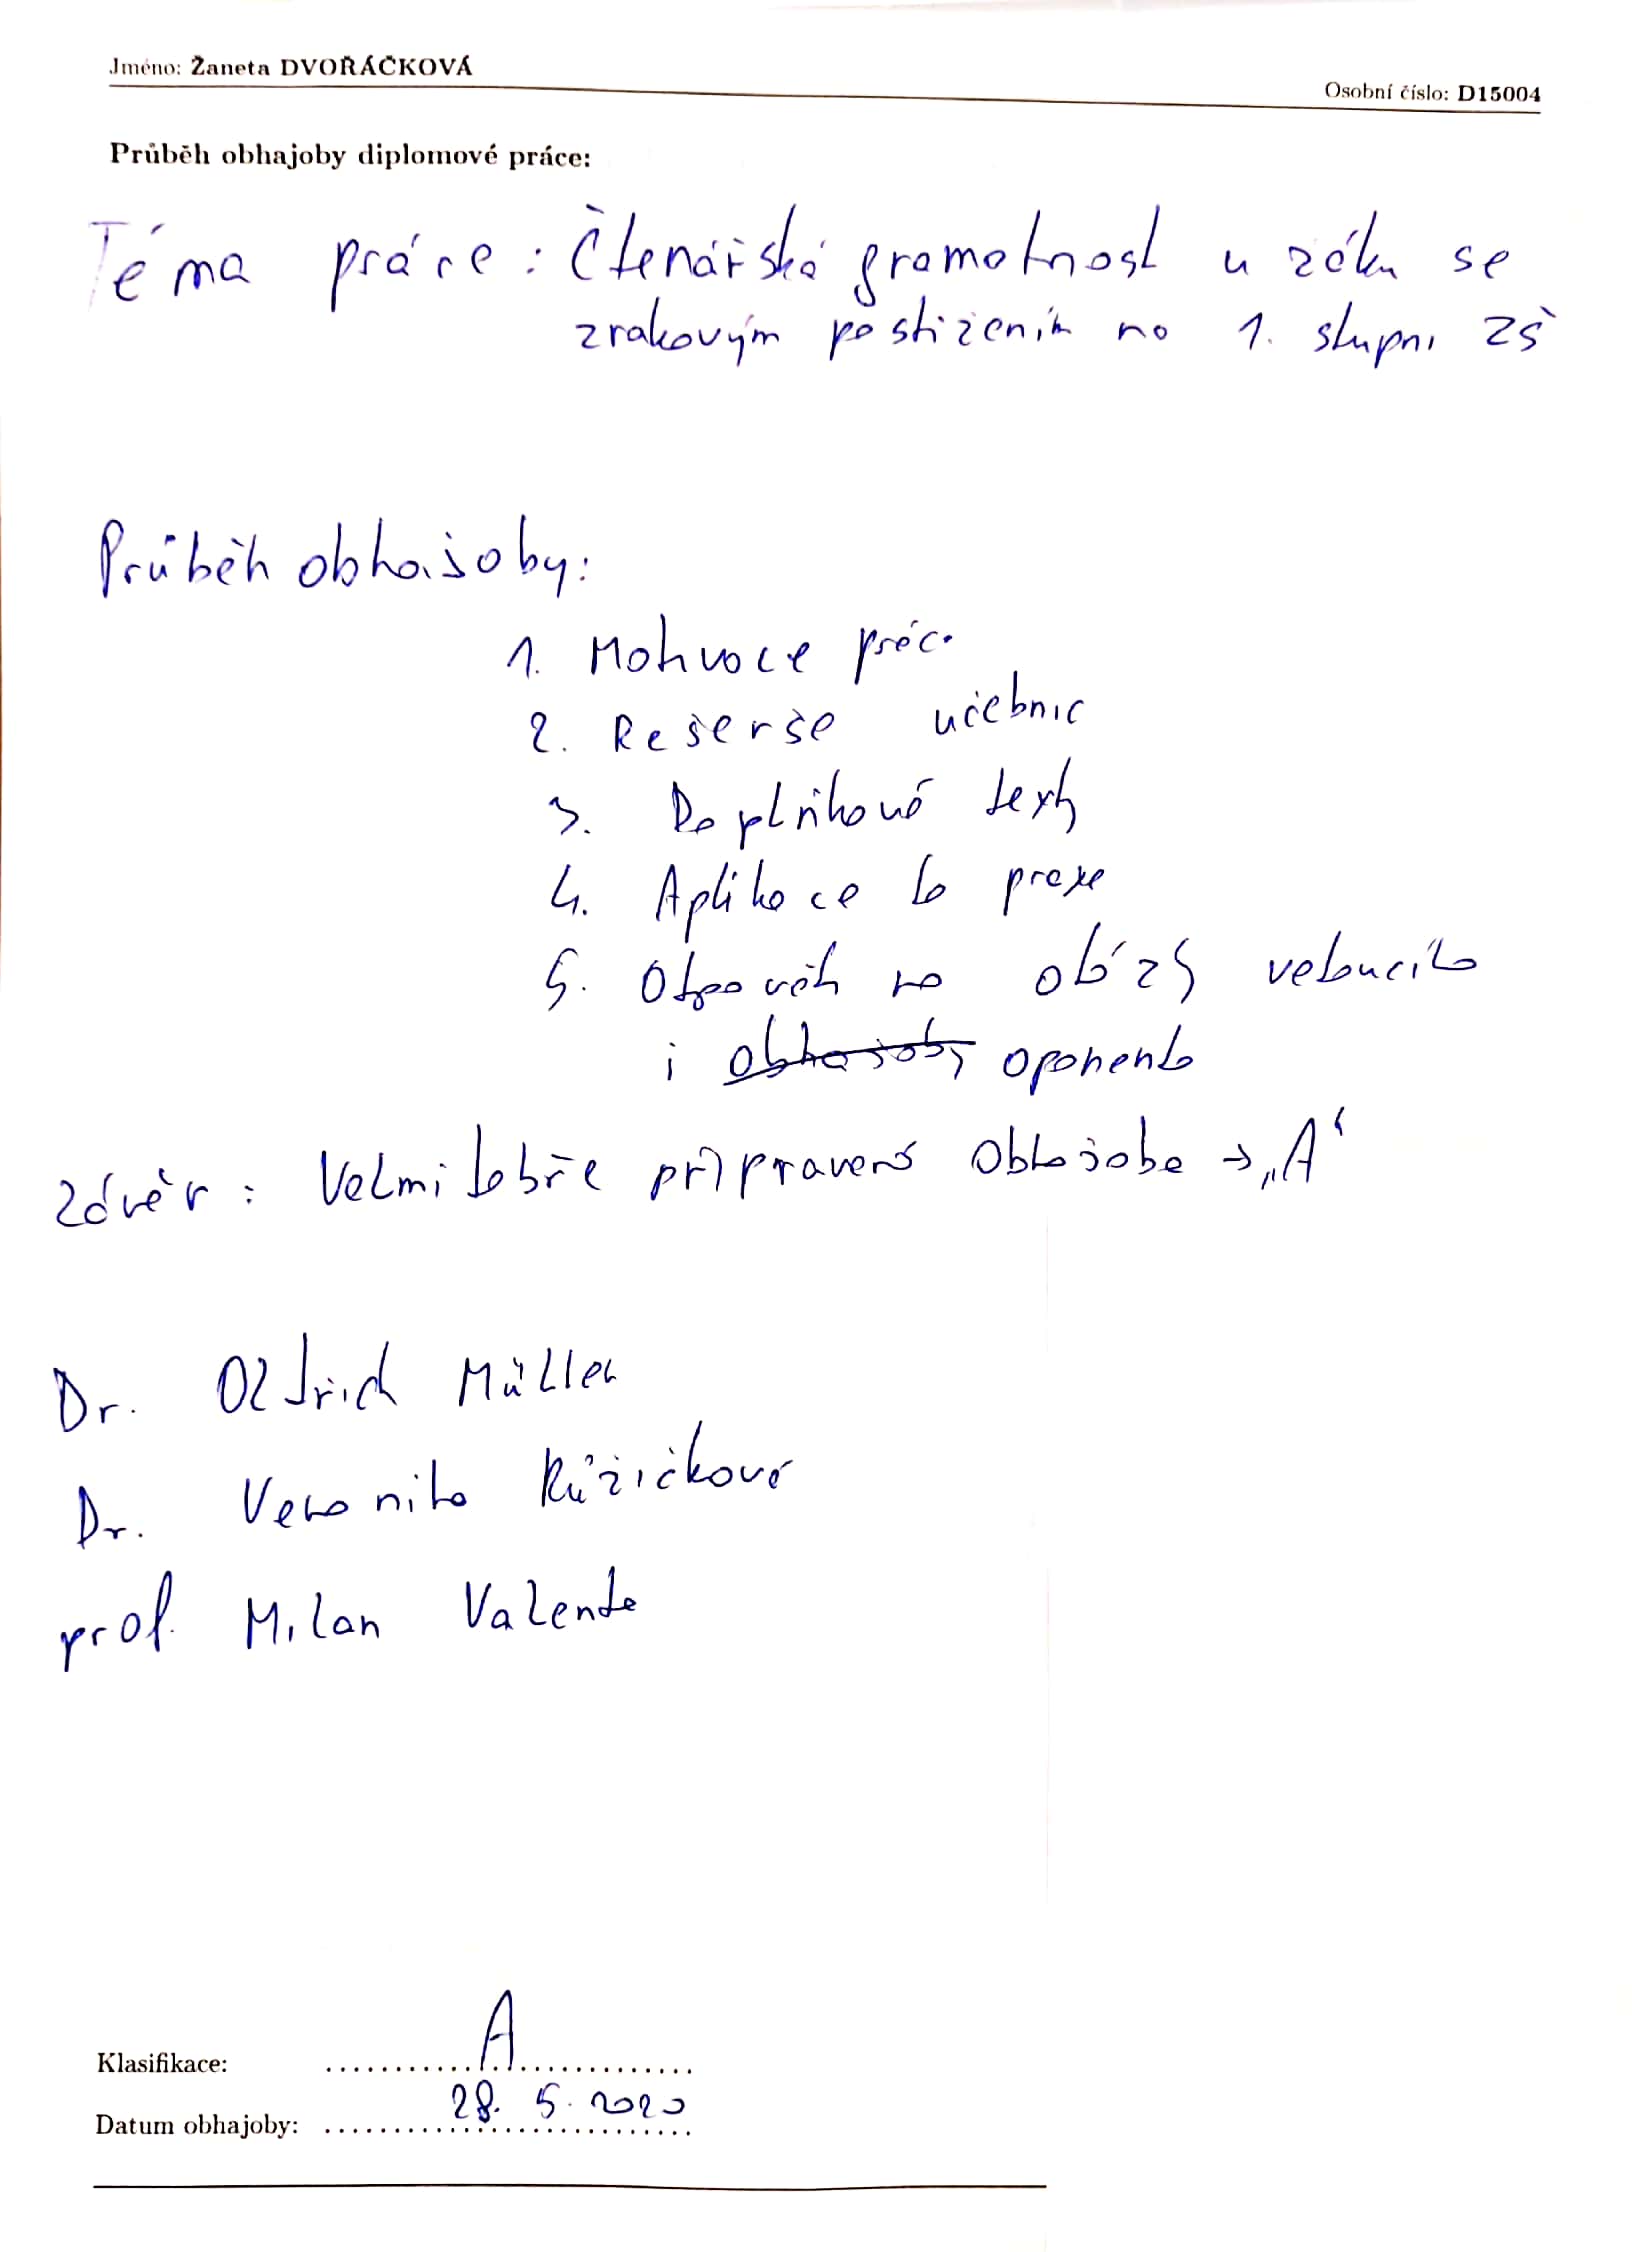 Jméno: Žaneta DVOŘÁČKOVÁ
Osobní číslo: D15004
Průběh obhajoby diplomové práce:
Téma práce : Čtenářská gramotnost u žáků se
zrakovým postižením na 1. stupni ZŠ
Průběh obhajoby:
1. Motivace práce
2. Rešerše učebnic
3. Doplňkové texty
4. Aplikace do praxe
5. Odpovědi na otázky vedoucího
i obhajoby oponenta
Závěr : Velmi dobře připravená obhajoba → „A“
Dr. Oldřich Müller
Dr. Veronika Růžičková
prof. Milan Valenta
A
Klasifikace:
28. 5. 2020
Datum obhajoby: